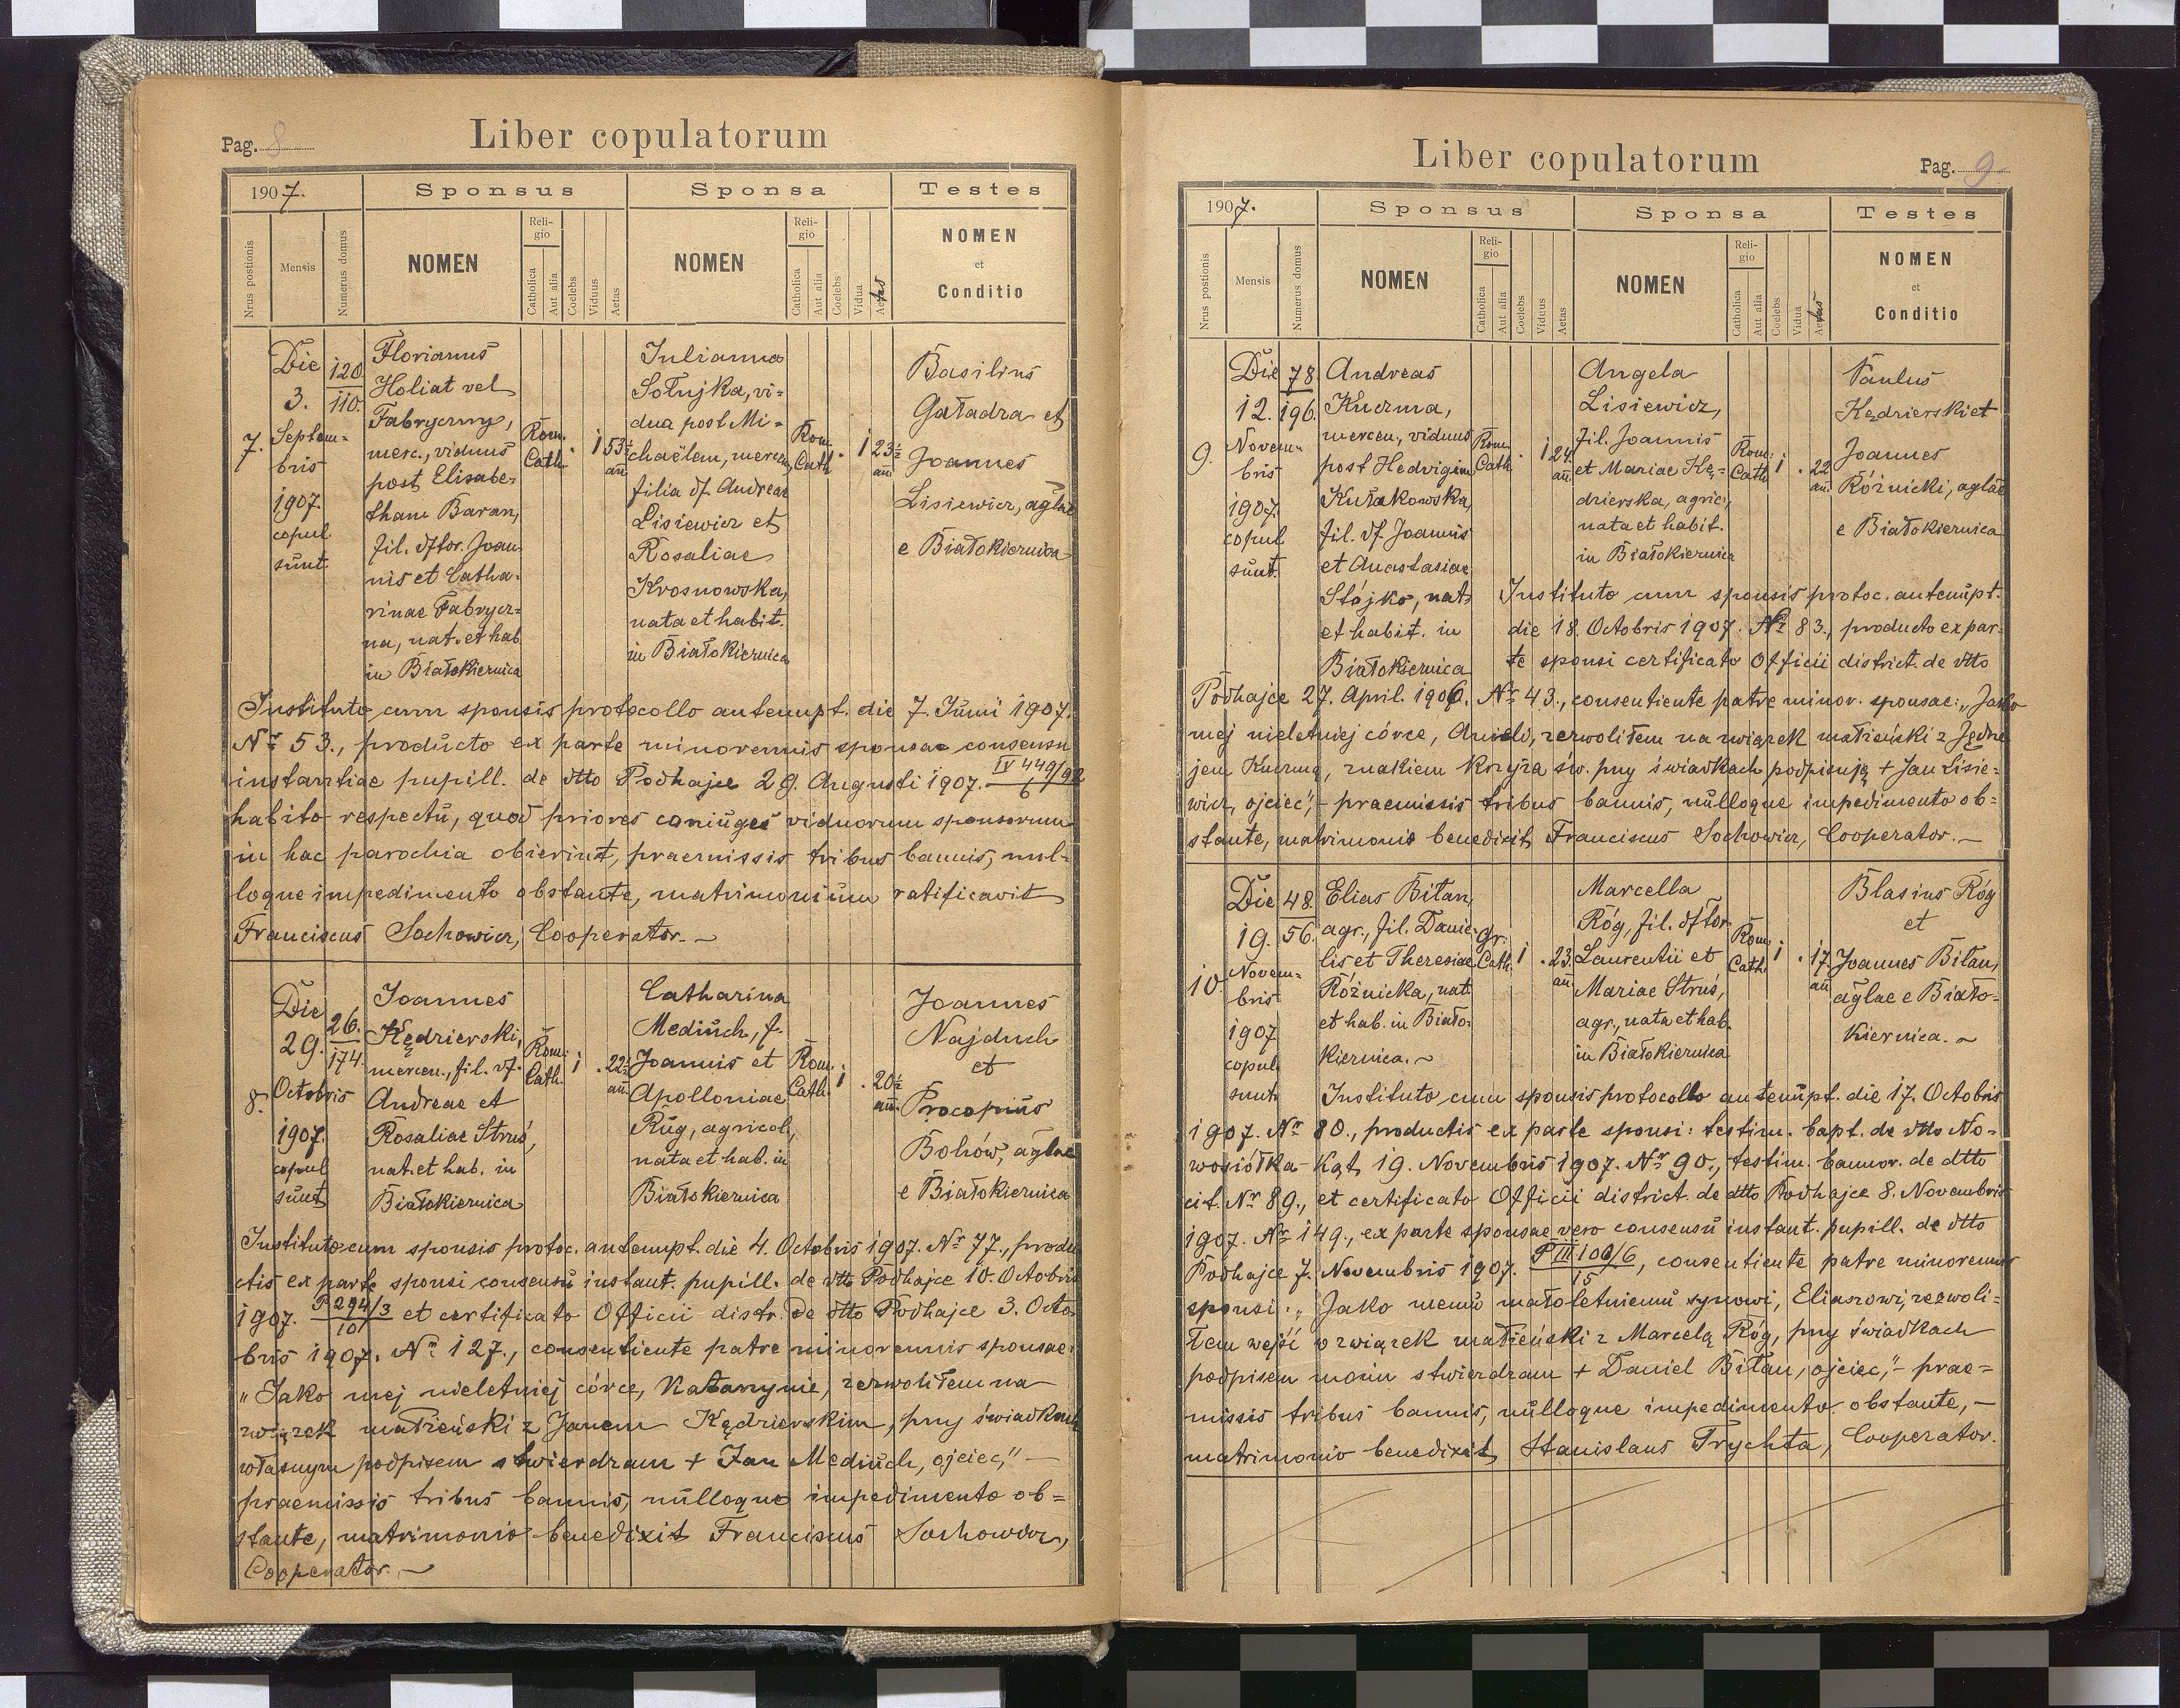 Pag. 8
Liber copulatorum
1907.
Sponsus
Sponsa
Testes
Nrus postionis
Mensis
Numerus domus
NOMEN
Religio
Catholica
Aut alia
Coelebs
Viduus
Aetas
NOMEN
Religio
Catholica
Aut alia
Coelebs
Vidua
Aetas
NOMEN
et
Conditio
7.
Die
3.
Septem=
bris
1907.
copul
sunt.
120.
110.
Florianus
Holiat vel
Fabryczny,
merc., viduus
post Elisabe=
tham Baran,
fil. dftor. Joan
nis et Catha=
rinae Fabrycz=
na, nat. et hab.
in Białokiernica
Rom.
Cath.
1
53½
an
Julianna
Sołujka, vi=
dua post Mi=
chaëlem, mercen,
filia df. Andreae
Lisiewicz et
Rosaliae
Krosnowska,
nata et habit.
in Białokiernica
Rom.
Cath.
1
23½
an
Basilius
Gaładra et
Joannes
Lisiewicz, aglae
e Białokiernica
Instituto cum sponsis protocollo antenupt. die 7. Junii 1907.
Nr 53., producto ex parte minorennis sponsae consensu
instantiae pupill. de dtto Podhajce 29. Augusti 1907. IV 449/92
6
habito respectu, quod priores coniuges viduorum sponsorum
in hac parochia obierint, praemissis tribus bannis, nul=
loque impedimento obstante, matrimonium ratificavit
Franciscus Sochowicz, Cooperator. ~
8.
Die
29.
Octobris
1907.
copul
sunt
26.
174.
Joannes
Kędzierski,
mercen., fil. df.
Andreae et
Rosaliae Struś,
nat. et hab. in
Białokiernica
Rom.
Cath.
1
22½
an.
Catharina
Mediuch, f.
Joannis et
Apolloniae
Rug, agricol,
nata et hab. in
Białokiernica
Rom.
Cath.
1
20½
an.
Joannes
Najduch
et
Procopius
Bohów, aglae
e Białokiernica
Instituto cum sponsis protoc. antenupt. die 4. Octobris 1907. Nr 77., produ
ctis ex parte sponsi consensu instant. pupill. de dtto Podhajce 10. Octobris
1907. P 294/3 et certificato Officii distr. de dtto Podhajce 3. Octo
10
bris 1907. Nr 127., consentiente patre minorennis sponsae:
"Jako mej nieletniej córce, Katarzynie, zezwoliłem na
związek małżeński z Janem Kędzierskim, przy świadkach
własnym podpisem stwierdzam + Jan Mediuch, ojciec," —
praemissis tribus bannis, nulloque impedimento ob=
stante, matrimonio benedixit Franciscus Sochowicz,
Cooperator. ~
Liber copulatorum
Pag. 9
1907.
Sponsus
Sponsa
Testes
Nrus postionis
Mensis
Numerus domus
NOMEN
Religio
Catholica
Aut alia
Coelebs
Viduus
Aetas
NOMEN
Religio
Catholica
Aut alia
Coelebs
Vidua
Aetas
NOMEN
et
Conditio
9.
Die
12.
Novem=
bris
1907.
copul
sunt.
78.
196.
Andreas
Kuczma,
mercen., viduus
post Hedvigim
Kułakowska,
fil. df Joannis
et Anastasiae
Stójko, nat.
et habit. in
Białokiernica
Rom.
Cath.
1
24.
an.
Angela
Lisiewicz,
fil. Joannis
et Mariae Kę=
dzierska, agric.,
nata et habit.
in Białokiernica
Rom.
Cath.
1
22
an.
Paulus
Kędzierski et
Joannes
Różnicki, aglae
e Białokiernica
Instituto cum sponsis protoc. antenupt.
die 18. Octobris 1907. Nr 83., producto ex par=
te sponsi certificato Officii district. de dtto
Podhajce 27. April. 1906. Nr 43., consentiente patre minor. sponsae: "Jako
mej nieletniej córce, Anieli, zezwoliłem na związek małżeński z Jędrze
jem Kuczmą, znakiem krzyża św. przy świadkach podpisuję + Jan Lisie=
wicz, ojciec", — praemissis tribus bannis, nulloque impedimento ob=
stante, matrimonio benedixit Franciscus Sochowicz, Cooperator. —
10.
Die
19.
Novem=
bris
1907
copul.
sunt.
48.
56.
Elias Bitan,
agr., fil. Danie=
lis et Theresiae
Różnicka, nat.
et hab. in Biało=
kiernica. ~
Gr.
Cath.
1
23.
an.
Marcella
Róg, fil. dftor
Laurentii et
Mariae Struś,
agr., nata et hab.
in Białokiernica
Rom.
Cath.
1
17.
an
Blasius Róg
et
Joannes Bitan,
aglae e Biało=
kiernica. ~
Instituto cum sponsis protocollo antenupt. die 17. Octobris
1907. Nr 80., productis ex parte sponsi: testim. bapt. de dtto No=
wosiółka-Kąt 19. Novembris 1907. Nr 90., testim. bannor. de dtto
cit. Nr 89., et certificato Officii district. de dtto Podhajce 8. Novembris
1907. Nr 149., ex parte sponsae vero consensu instant. pupill. de dtto
Podhajce 7. Novembris 1907. P III 100/6, consentiente patre minorennis
15
sponsi: "Jako memu małoletniemu synowi, Eliaszowi, zezwoli=
łem wejść w związek małżeński z Marcelą Róg, przy świadkach
podpisem moim stwierdzam + Daniel Bitan, ojciec," — prae=
missis tribus bannis, nulloque impedimento obstante, —
matrimonio benedixit Stanislaus Trychta, Cooperator.